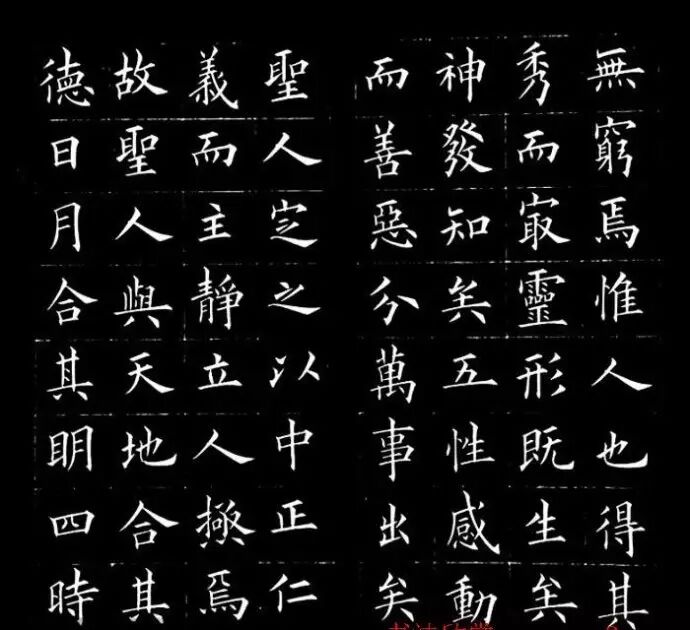 無窮焉惟人也得其
秀而㝡靈形既生矣
神發知矣五性感動
而善惡分萬事出矣
聖人定之以中正仁
義而主靜立人極焉
故聖人與天地合其
德日月合其明四時